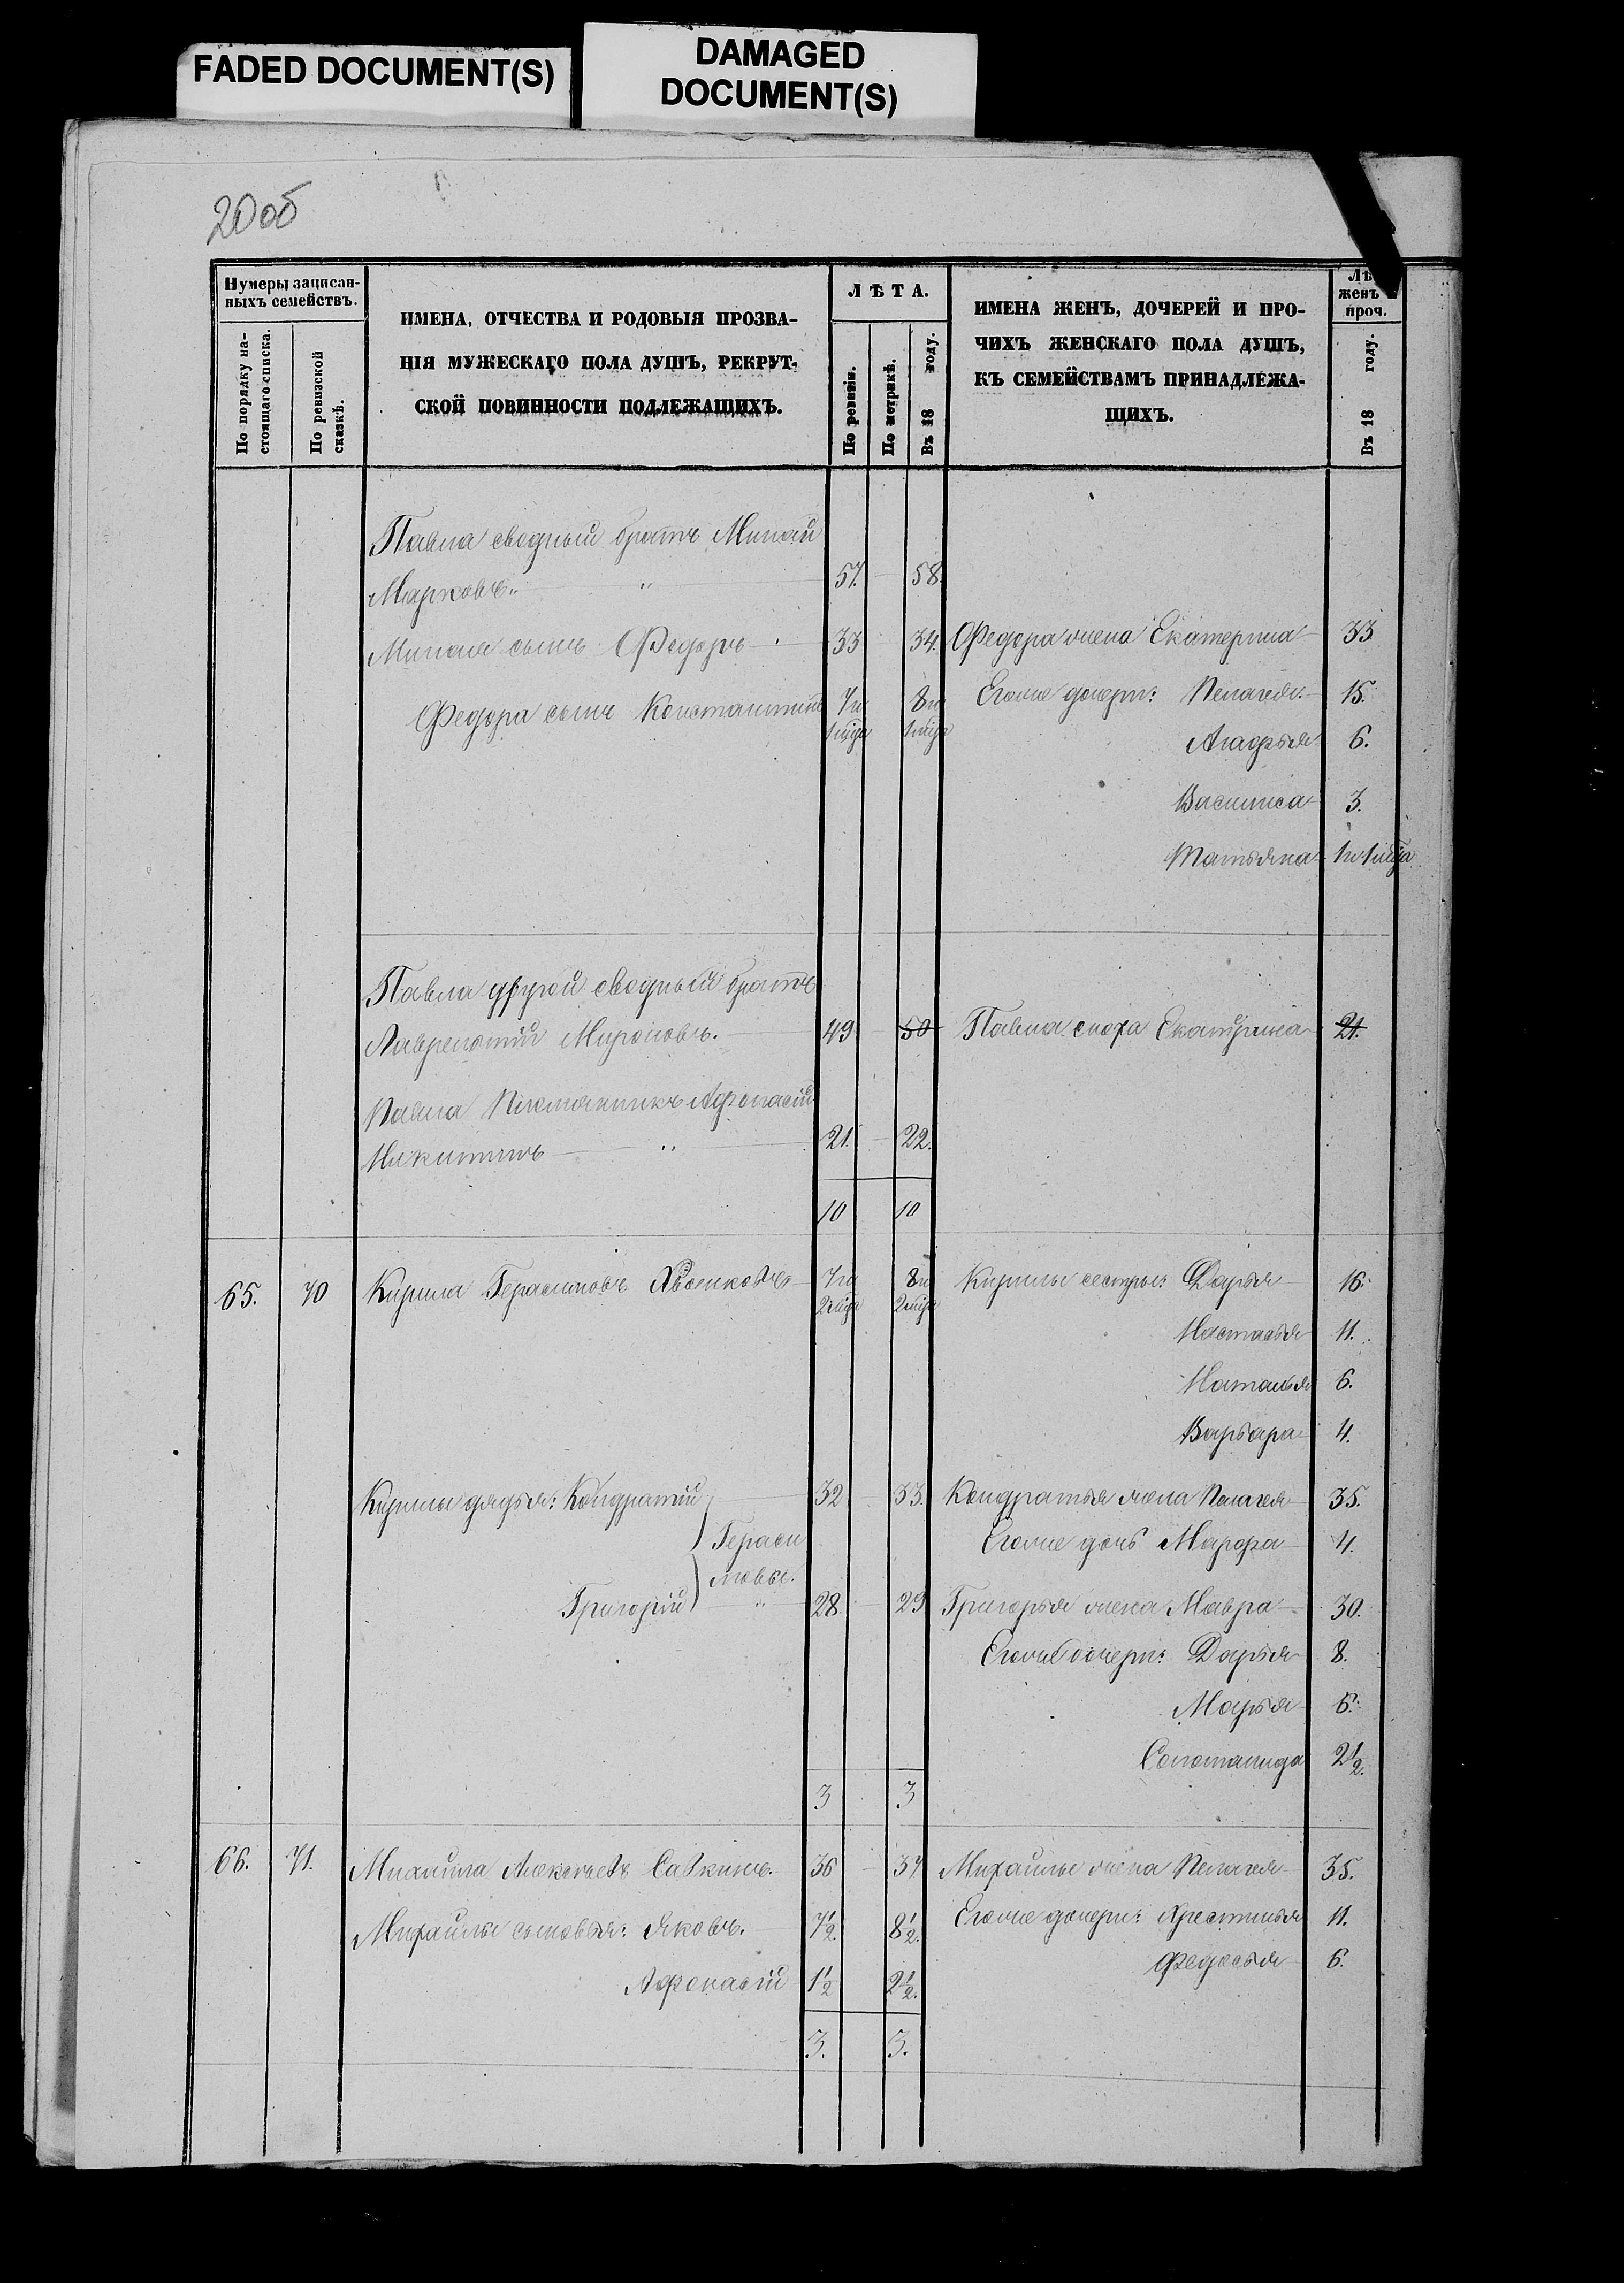 FADED DOCUMENT(S)
DAMAGED
DOCUMENT(S)
20об
Нумеры записан-
ныхъ семействъ.
По порядку на-
стоящаго списка.
По ревизской
сказкѣ.
ИМЕНА, ОТЧЕСТВА И РОДОВЫЯ ПРОЗВА-
НІЯ МУЖЕСКАГО ПОЛА ДУШЪ, РЕКРУТ-
СКОЙ ПОВИННОСТИ ПОДЛЕЖАЩИХЪ.
ЛѢТА.
По ревизіи.
По метрикѣ.
Въ 18 году.
ИМЕНА ЖЕНЪ, ДОЧЕРЕЙ И ПРО-
ЧИХЪ ЖЕНСКАГО ПОЛА ДУШЪ,
КЪ СЕМЕЙСТВАМЪ ПРИНАДЛЕЖА-
ЩИХЪ.
Лѣ
женъ
проч.
Въ 18 году.
Павла сводный братъ Минай
Марковъ 57. 58.
Миная сынъ Федоръ 33 34. Федора жена Екатерина 33
Федора сынъ Константинъ 7и 8и Егоже дочери: Пелагея 15.
1мца 1мца
Агафья 6.
Василиса 3.
Татьяна 1и1мца
Павла другой сводный братъ
Лаврентій Мироновъ. 49 50 Павла сноха Екатерина 21.
Павла Племянникъ Афонасій
Никитинъ 21. 22.
10 10
65. 70 Кирила Герасимовъ 7и 8и Кирилы сестры: Дарья 16.
2мца 2мца
Настасья 11.
Наталья 6.
Варвара 4.
Кирилы дядья: Кондратій 32 33. Кондратья жена Пелагея 35.
Гераси Егоже дочь Марфа 4.
мовы.
Григорій 28. 29 Григорья жена Мавра 30.
Егоже дочери: Дарья 8.
Марья 6.
Соломанида 2½.
3 3
66. 71. Михаила Алексеевъ Савкинъ. 36 37 Михайлы жена Пелагея 35.
Михайлы сыновья: Яковъ. 7½. 8½. Егоже дочери: Хрестинья 11.
Федосья 6.
Афонасій 1½ 2½.
3. 3.